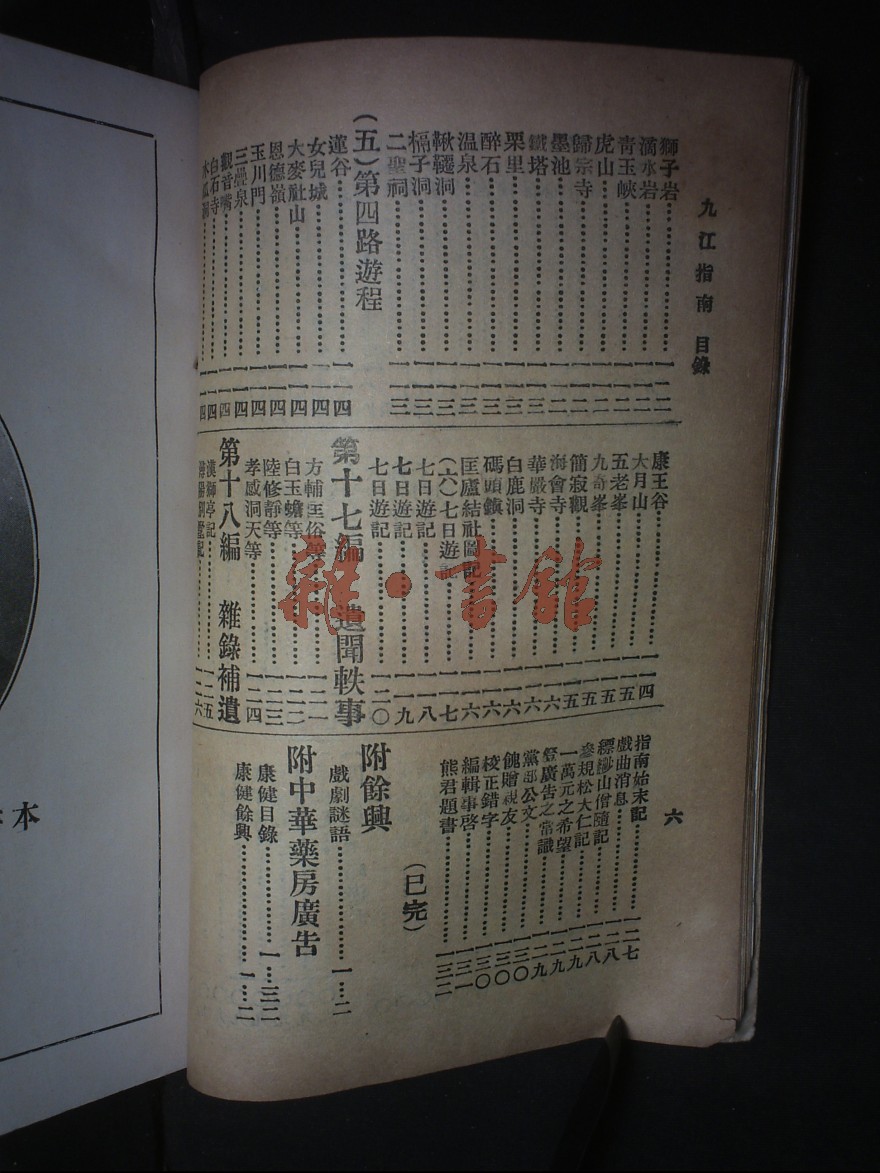 九江指南 目錄
六
獅子岩⋯⋯一一二
滴水岩⋯⋯一一二
靑玉峽⋯⋯一一二
虎山⋯⋯一一二
歸宗寺⋯⋯一一二
墨池⋯⋯一一二
鐵塔⋯⋯一一三
栗里⋯⋯一一三
醉石⋯⋯一一三
温泉⋯⋯一一三
鞦韆洞⋯⋯一一三
槅子洞⋯⋯一一三
二聖祠⋯⋯一一三
(五)第四路遊程
蓮谷⋯⋯一一四
女兒城⋯⋯一一四
大麥祉山⋯⋯一一四
恩德嶺⋯⋯一一四
玉川門⋯⋯一一四
三疊泉⋯⋯一一四
觀音嘴⋯⋯一一四
白石寺⋯⋯一一四
木瓜洞⋯⋯一一四
康王谷⋯⋯一一四
大月山⋯⋯一一五
五老峯⋯⋯一一五
九奇峯⋯⋯一一五
簡寂觀⋯⋯一一五
海會寺⋯⋯一一六
華嚴寺⋯⋯一一六
白鹿洞⋯⋯一一六
碼頭鎭⋯⋯一一六
匡廬結社圖記⋯⋯一一六
(六)七日遊記⋯⋯一一七
七日遊記⋯⋯一一八
七日遊記⋯⋯一一九
七日遊記⋯⋯一二〇
第十七編 遺聞軼事
方輔匡俗等⋯⋯一二一
白玉蟾等⋯⋯一二二
陸修靜等⋯⋯一二三
孝感洞天等⋯⋯一二四
第十八編 雜錄補遺
漢獅亭記⋯⋯一二五
一二六
指南始末記⋯⋯一二七
戲曲消息⋯⋯一二八
縹緲山僧隨記⋯⋯一二八
參規松大仁記⋯⋯一二九
一萬元之希望⋯⋯一二九
登廣告之常識⋯⋯一二九
黨部公文⋯⋯一三〇
餽贈親友⋯⋯一三〇
校正錯字⋯⋯一三〇
編輯事啓⋯⋯一三一
熊君題書⋯⋯一三二
(已完)
附餘興
戲劇謎語⋯⋯一⋯二
附中華藥房廣告
康健目錄⋯⋯一⋯三二
康健餘興⋯⋯一⋯二
雜·書館
本